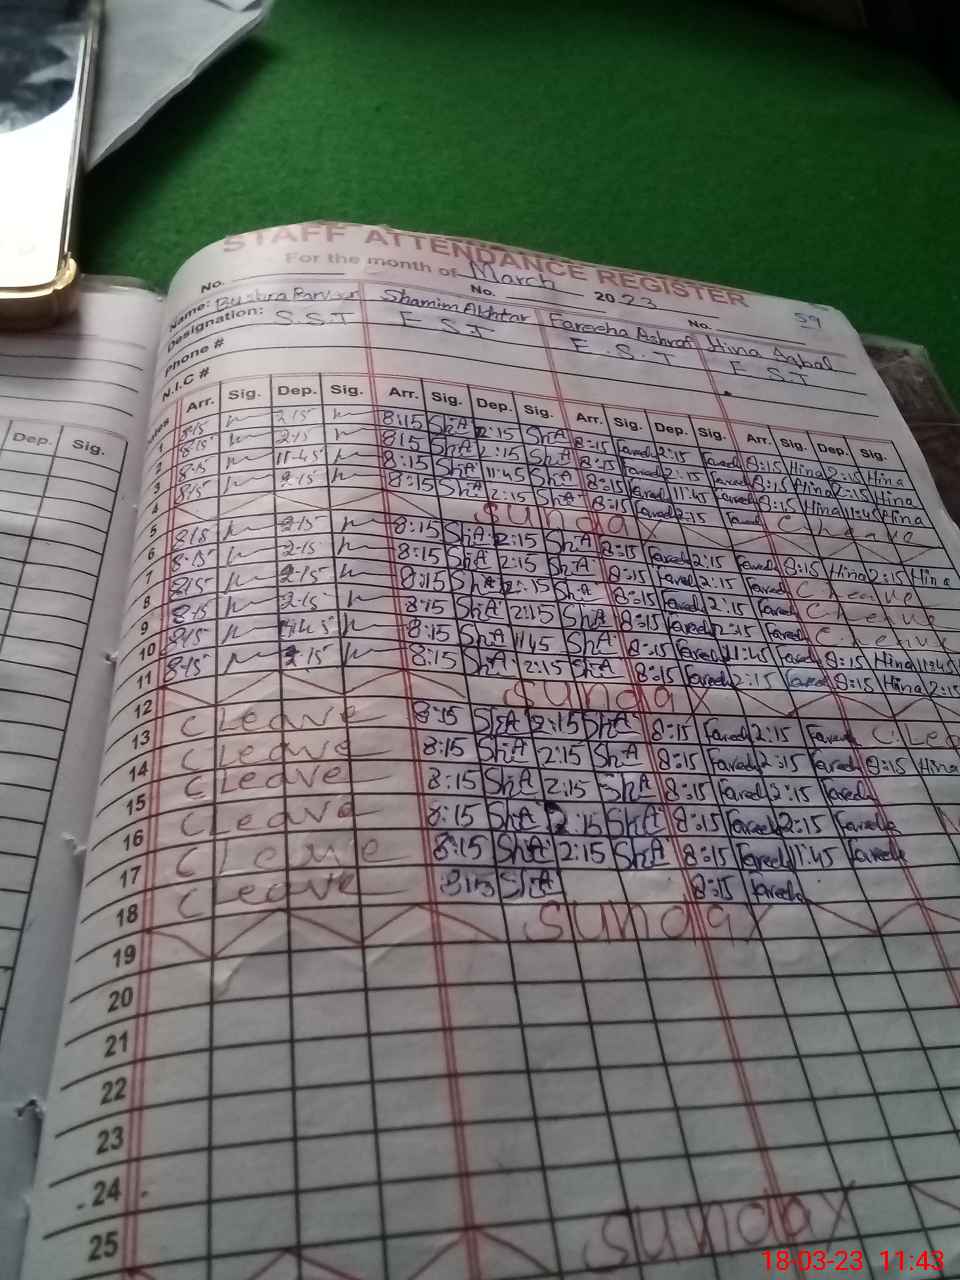 STAFF ATTENDANCE REGISTER
For the month of March 2023
No. No. No. 59
Name: Bushra Parveen Shamim Akhtar Fareeha Ashraf Hina Iqbal
Designation: S.S.T E S.T E.S.T E S.T
Phone #
N.I.C #
Dep. Sig.
Arr. Sig. Dep. Sig. Arr. Sig. Dep. Sig. Arr. Sig. Dep. Sig. Arr. Sig. Dep. Sig.
1 8:15 2:15 8:15 ShA 2:15 ShA 8:15 Fareeha 2:15 Fareeha 8:15 Hina 2:15 Hina
2 8:15 2:15 8:15 ShA 2:15 ShA 8:15 Fareeha 2:15 Fareeha 8:15 Hina 2:15 Hina
3 8:15 11:45 8:15 ShA 11:45 ShA 8:15 Fareeha 11:45 Fareeha 8:15 Hina 11:45 Hina
4 8:15 2:15 8:15 ShA 2:15 ShA 8:15 Fareeha 2:15 Fareeha C Leave
5 Sunday
6 8:15 2:15 8:15 ShA 2:15 ShA 8:15 Fareeha 2:15 Fareeha 8:15 Hina 2:15 Hina
7 8:15 2:15 8:15 ShA 2:15 ShA 8:15 Fareeha 2:15 Fareeha C Leave
8 8:15 2:15 8:15 ShA 2:15 ShA 8:15 Fareeha 2:15 Fareeha C Leave
9 8:15 2:15 8:15 ShA 2:15 ShA 8:15 Fareeha 2:15 Fareeha C Leave
10 8:15 11:45 8:15 ShA 11:45 ShA 8:15 Fareeha 11:45 Fareeha 8:15 Hina 11:45
11 8:15 2:15 8:15 ShA 2:15 ShA 8:15 Fareeha 2:15 Fareeha 8:15 Hina 2:15
12 Sunday
13 C Leave 8:15 ShA 2:15 ShA 8:15 Fareeha 2:15 Fareeha C Lea
14 C Leave 8:15 ShA 2:15 ShA 8:15 Fareeha 2:15 Fareeha 8:15 Hina
15 C Leave 8:15 ShA 2:15 ShA 8:15 Fareeha 2:15 Fareeha
16 C Leave 8:15 ShA 2:15 ShA 8:15 Fareeha 2:15 Fareeha
17 C Leave 8:15 ShA 2:15 ShA 8:15 Fareeha 11:45 Fareeha
18 C Leave 8:15 ShA 8:15 Fareeha
19 Sunday
20
21
22
23
24
25
Sunday
18-03-23 11:43